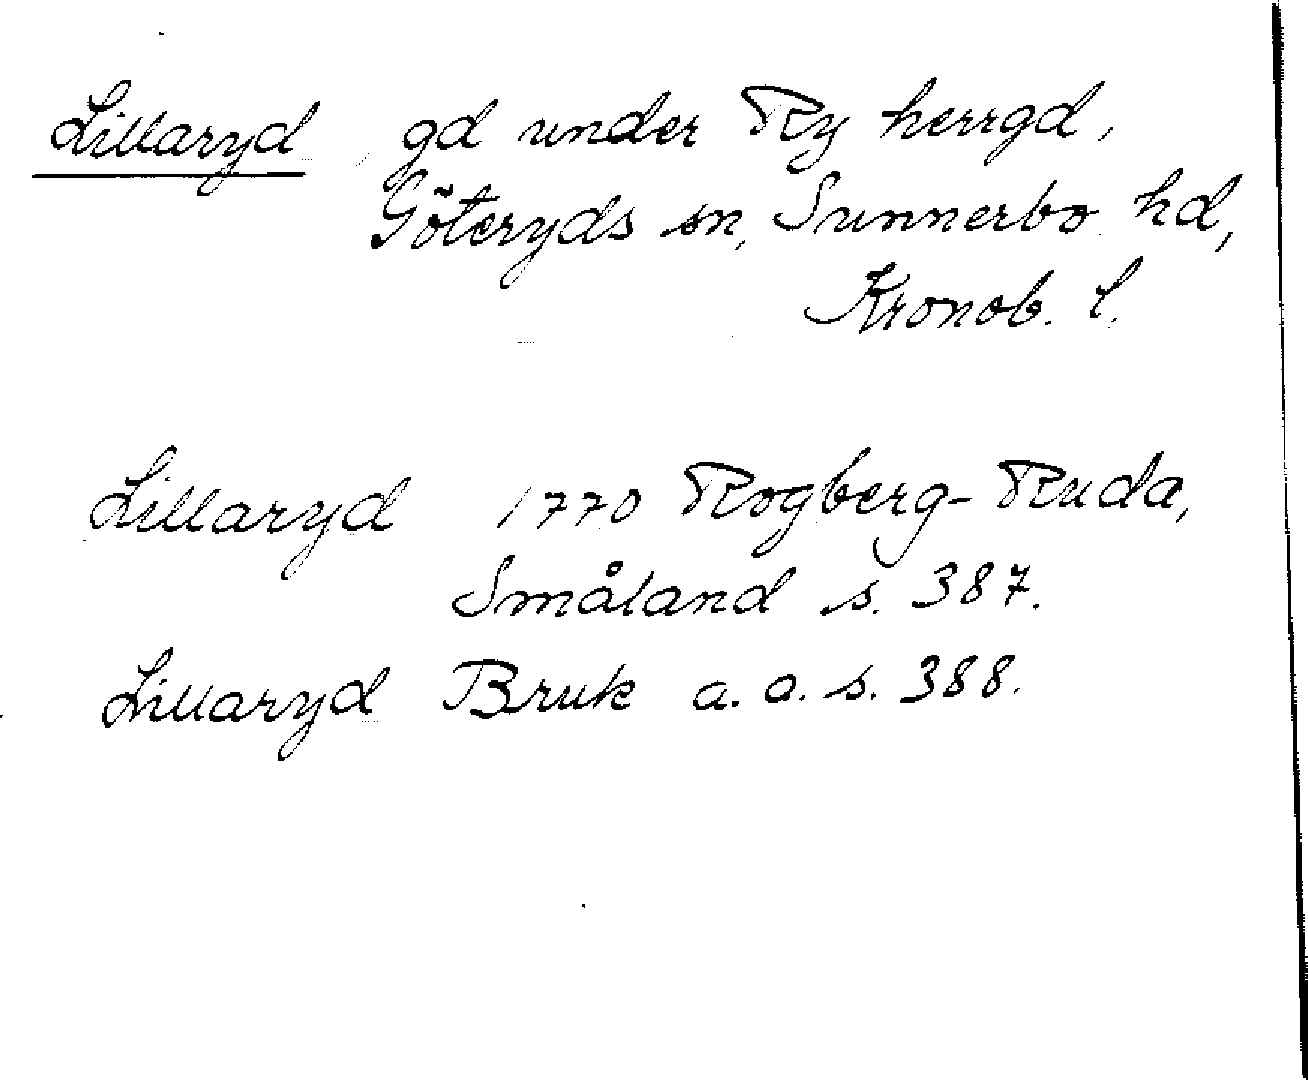 Lillaryd, gd under Ry herrgd,
Göteryds sn, Sunnerbo hd,
Kronob. l.
Lillaryd 1770 Rogberg-Ruda,
Småland s. 387.
Lillaryd Bruk a. a. s. 388.